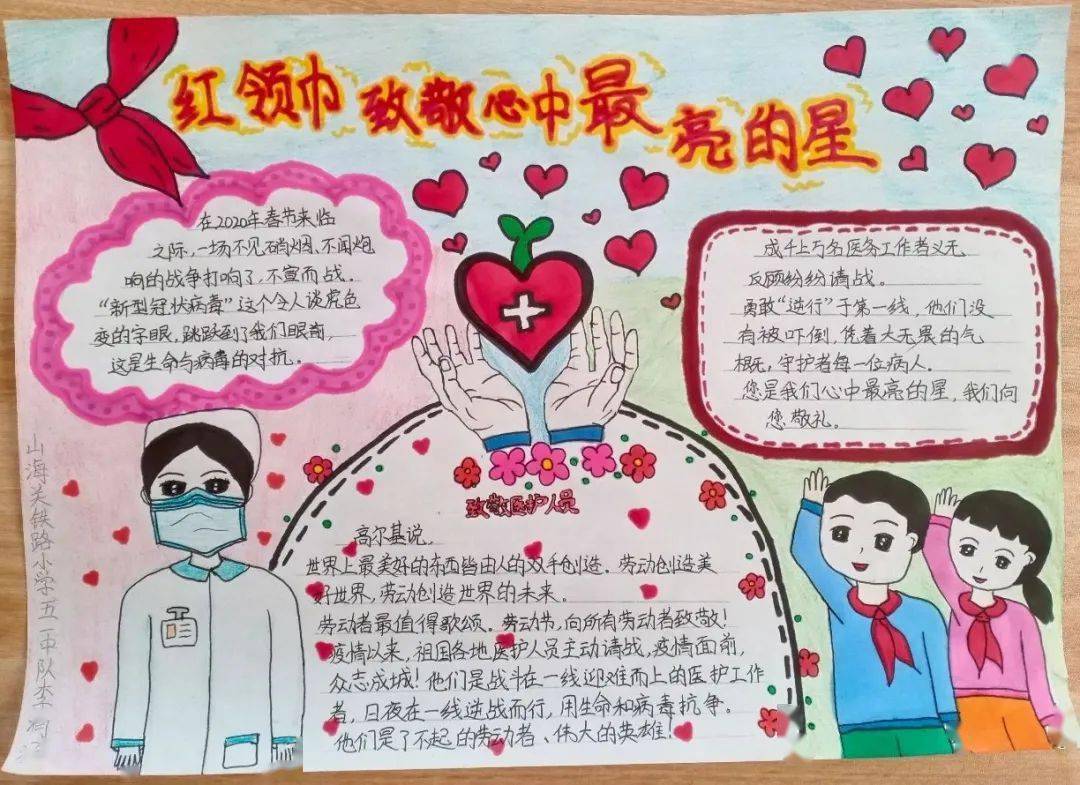 红领巾 致敬心中最亮的星
在2020年春节来临
之际,一场不见硝烟、不闻炮
响的战争打响了,不宣而战。
“新型冠状病毒”这个令人谈虎色
变的字眼,跳跃到了我们眼前,
这是生命与病毒的对抗。
成千上万名医务工作者义无
反顾纷纷请战。
勇敢“逆行”于第一线,他们没
有被吓倒,凭着大无畏的气
概,守护者每一位病人。
您是我们心中最亮的星,我们向
您敬礼。
致敬医护人员
高尔基说,
世界上最美好的东西皆由人的双手创造。劳动创造美
好世界,劳动创造世界的未来。
劳动者最值得歌颂。劳动节,向所有劳动者致敬!
疫情以来,祖国各地医护人员主动请战,疫情面前,
众志成城!他们是战斗在一线迎难而上的医护工作
者,日夜在一线逆战而行,用生命和病毒抗争。
他们是了不起的劳动者、伟大的英雄!
山海关铁路小学五一中队李